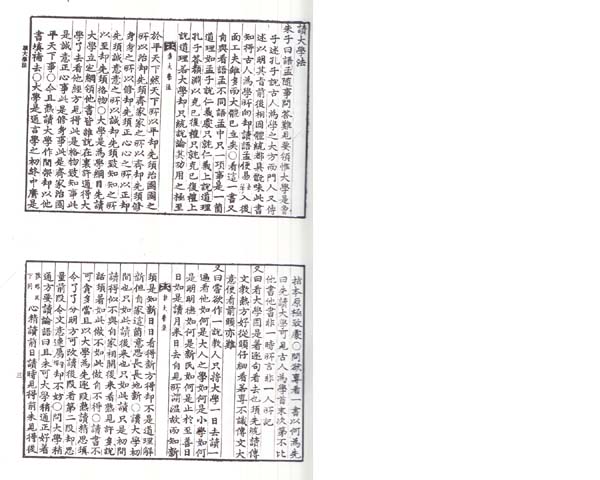 讀大學法
朱子曰語孟隨事問答難見要領惟大學是曾
子述孔子說古人為學之大方而門人又傳
述以明其旨前後相因體統都具玩味此書
知得古人為學所向却讀語孟便易入後
面工夫雖多而大體已立矣○看這一書又
自與看語孟不同語孟中只一項事是一箇
道理如孟子說仁義處只就仁義上說道理
孔子答顏淵以克己復禮只就克己復禮上
說道理若大學却只統說論其功用之極至
讀大學法
於平天下然天下所以平却先須治國國之
所以治却先須齊家家之所以齊却先須修
身身之所以修却先須正心心之所以正却
先須誠意意之所以誠却先須致知知之所
以至却先須格物○大學是為學綱目先讀
大學立定綱領他書皆雜說在裏許通得大
學了去看他經方見得此是格物致知事此
是誠意正心事此是修身事此是齊家治國
平天下事○今且熟讀大學作間架却以他
書填補去○大學是通言學之初終中庸是
讀大學法
指本原極致處○問欲專看一書以何為先
曰先讀大學可見古人為學首末次第不比
他書他書非一時所言非一人所記
又曰看大學固是著逐句看去也須先統讀傳
文教熟方好從頭仔細看若專不識傳文大
意便看前頭亦難
又曰嘗欲作一說教人只將大學一日去讀一
遍看他如何是大人之學如何是小學如何
是明明德如何是新民如何是止於至善日
日如是讀月來日去自見所謂溫故而知新
讀大學法
須是知新日日看得新方得却不是道理解
新但自家這箇意思長長地新○讀大學初
間也只如此讀後來也只如此讀只是初間
讀得似不與自家相關後來看熟見許多說
話須著如此做不如此做自不得○讀書不
可貪多當且以大學為先逐段熟讀精思須
令了了分明方可改讀後段看第二段却思
量前段令文意連屬却不妨○問大學稍
通方要讀論語曰且未可大學稍通正好著
心精讀前日讀時見得前未見得後
三